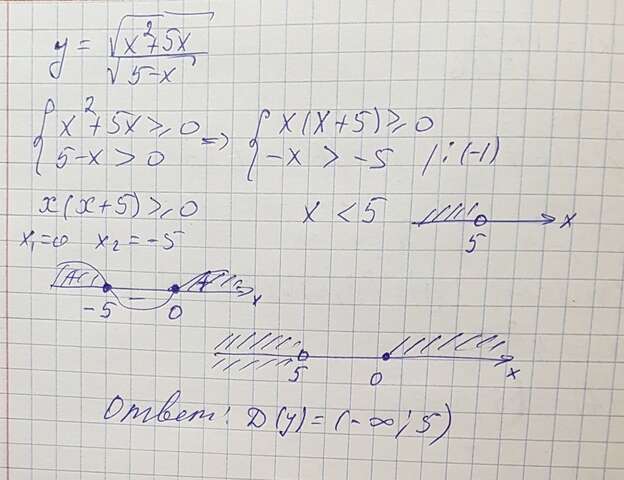 y = √(x²+5x) / √(5-x)
{ x²+5x ⩾ 0 => { x(x+5) ⩾ 0
5-x > 0 -x > -5 / :(-1)
x(x+5) ⩾ 0 x < 5
x₁=0 x₂=-5
5 x
-5 - 0 x
5 0 x
Ответ: D(y) = (-∞; 5)